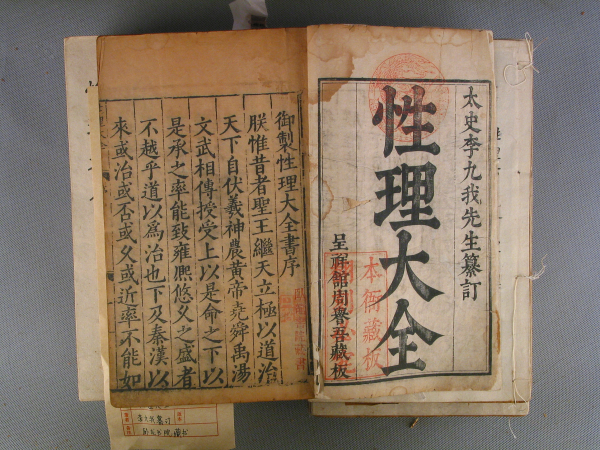 太史李九我先生纂訂
性理大全
呈祥館周譽吾藏板
本衙藏板
御製性理大全書序
朕惟昔者聖王繼天立極以道治
天下自伏羲神農黃帝堯舜禹湯
文武相傳授受上以是命之下以
是承之率能致雍熙悠久之盛者
不越乎道以爲治也下及秦漢以
來或治或否或久或近率不能如